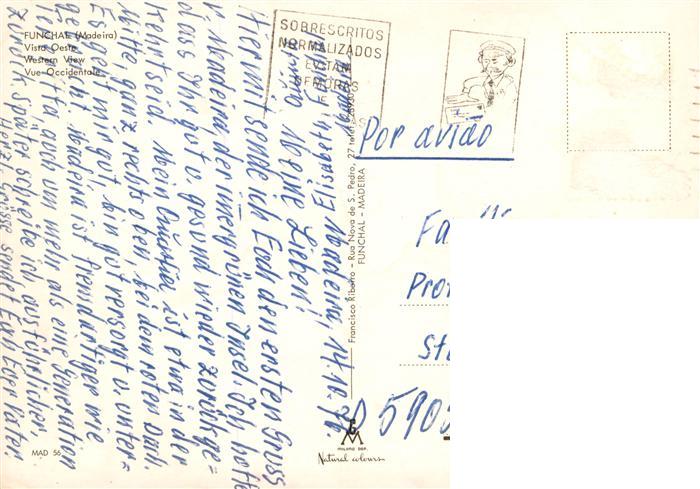 FUNCHAL (Madeira)
Vista Oeste
Western View
Vue Occidentale
SOBRESCRITOS
NORMALIZADOS
EVITAM
DEMORAS
E
Por avião
Madeira, 14.10.76.
Meine Lieben!
Hiermit sende ich Euch den ersten Gruss
v. Madeira der immergrünen Insel. Ich hoffe
dass Ihr gut u. gesund wieder zurückge=
kehrt seid. Mein Quartier ist etwa in der
Mitte ganz rechts oben, bei dem roten Dach.
Es geht mir gut, bin gut versorgt u. unter=
gebracht. Madeira ist fremdartiger wie
auch um mehr als eine Generation
zurück. Später schreibe ich ausführlicher.
Herzl. Grüsse sendet Euch Eue Vater.
Francisco Ribeiro - Rua Nova de S. Pedro, 27
FUNCHAL - MADEIRA
D 590
MAD 56
GM
MILANO DEP.
Natural colours